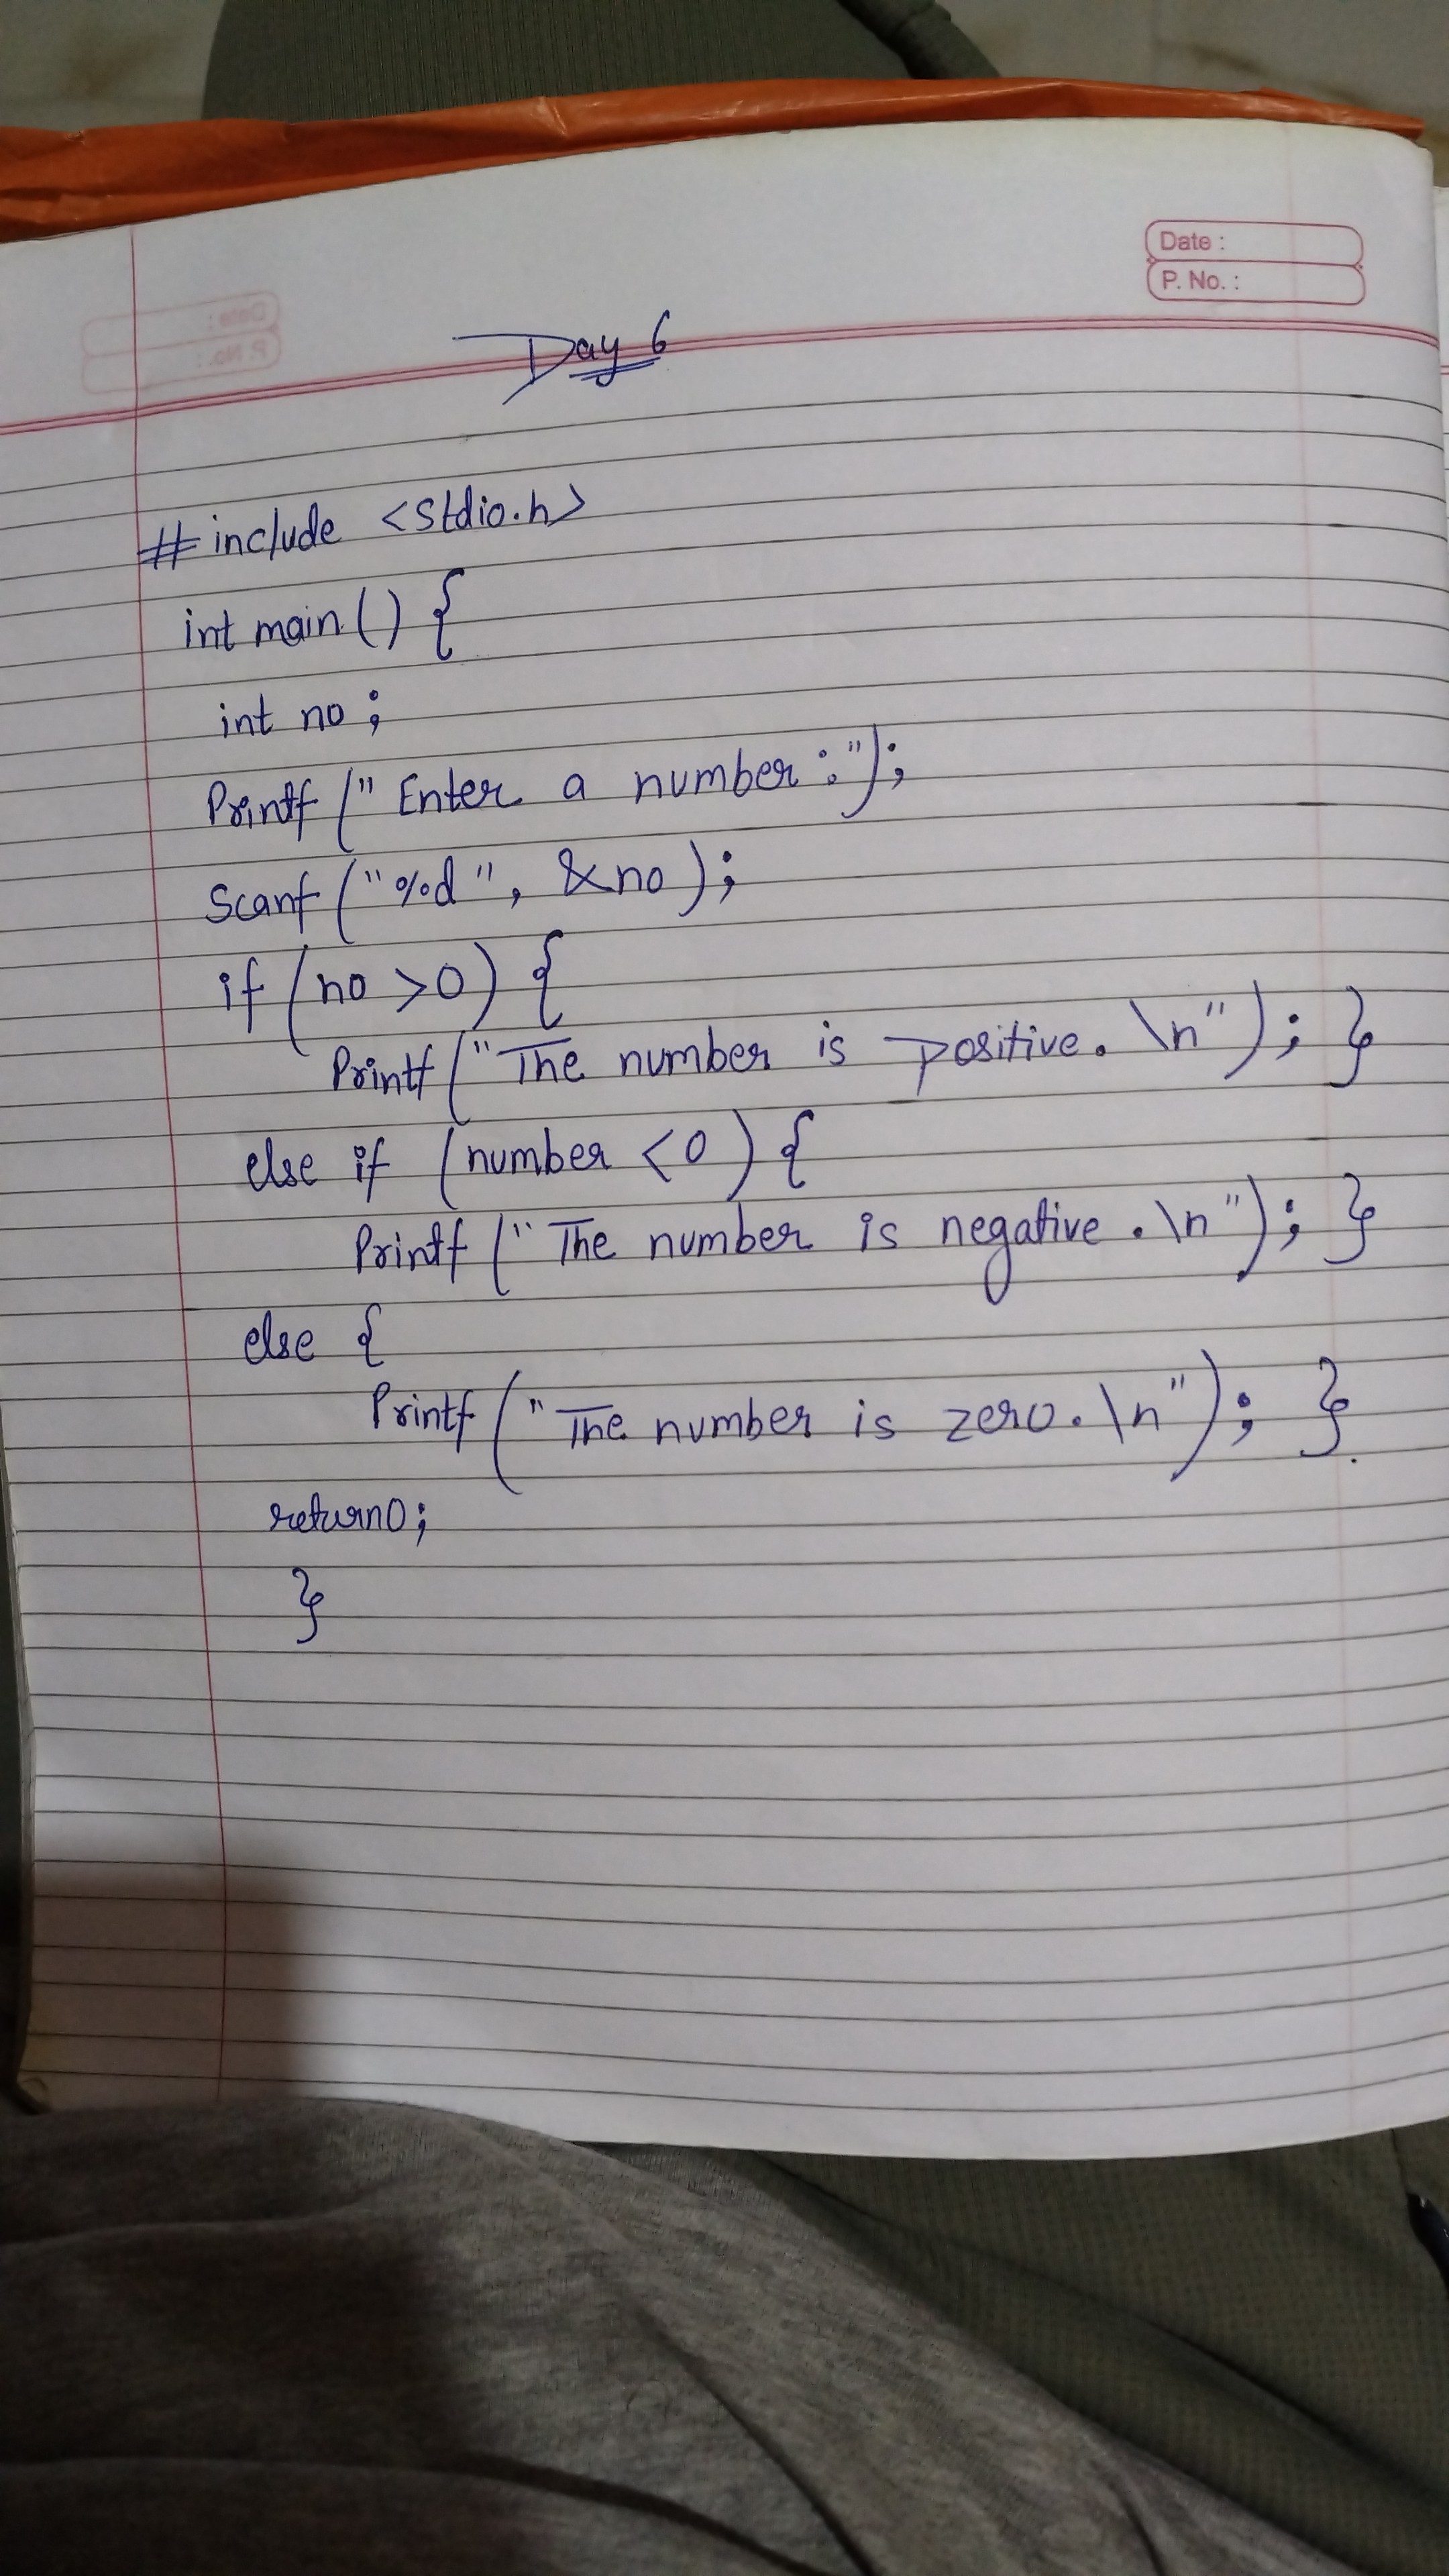 Date :
P. No. :
Day 6
# include <stdio.h>
int main() {
int no ;
Printf (" Enter a number : ");
Scanf ("%d", &no );
if (no >0) {
Printf ("The number is positive. \n") ; }
else if (number <0 ) {
Printf ("The number is negative .\n") ; }
else {
Printf ("The number is zero. \n") ; }.
return0;
}